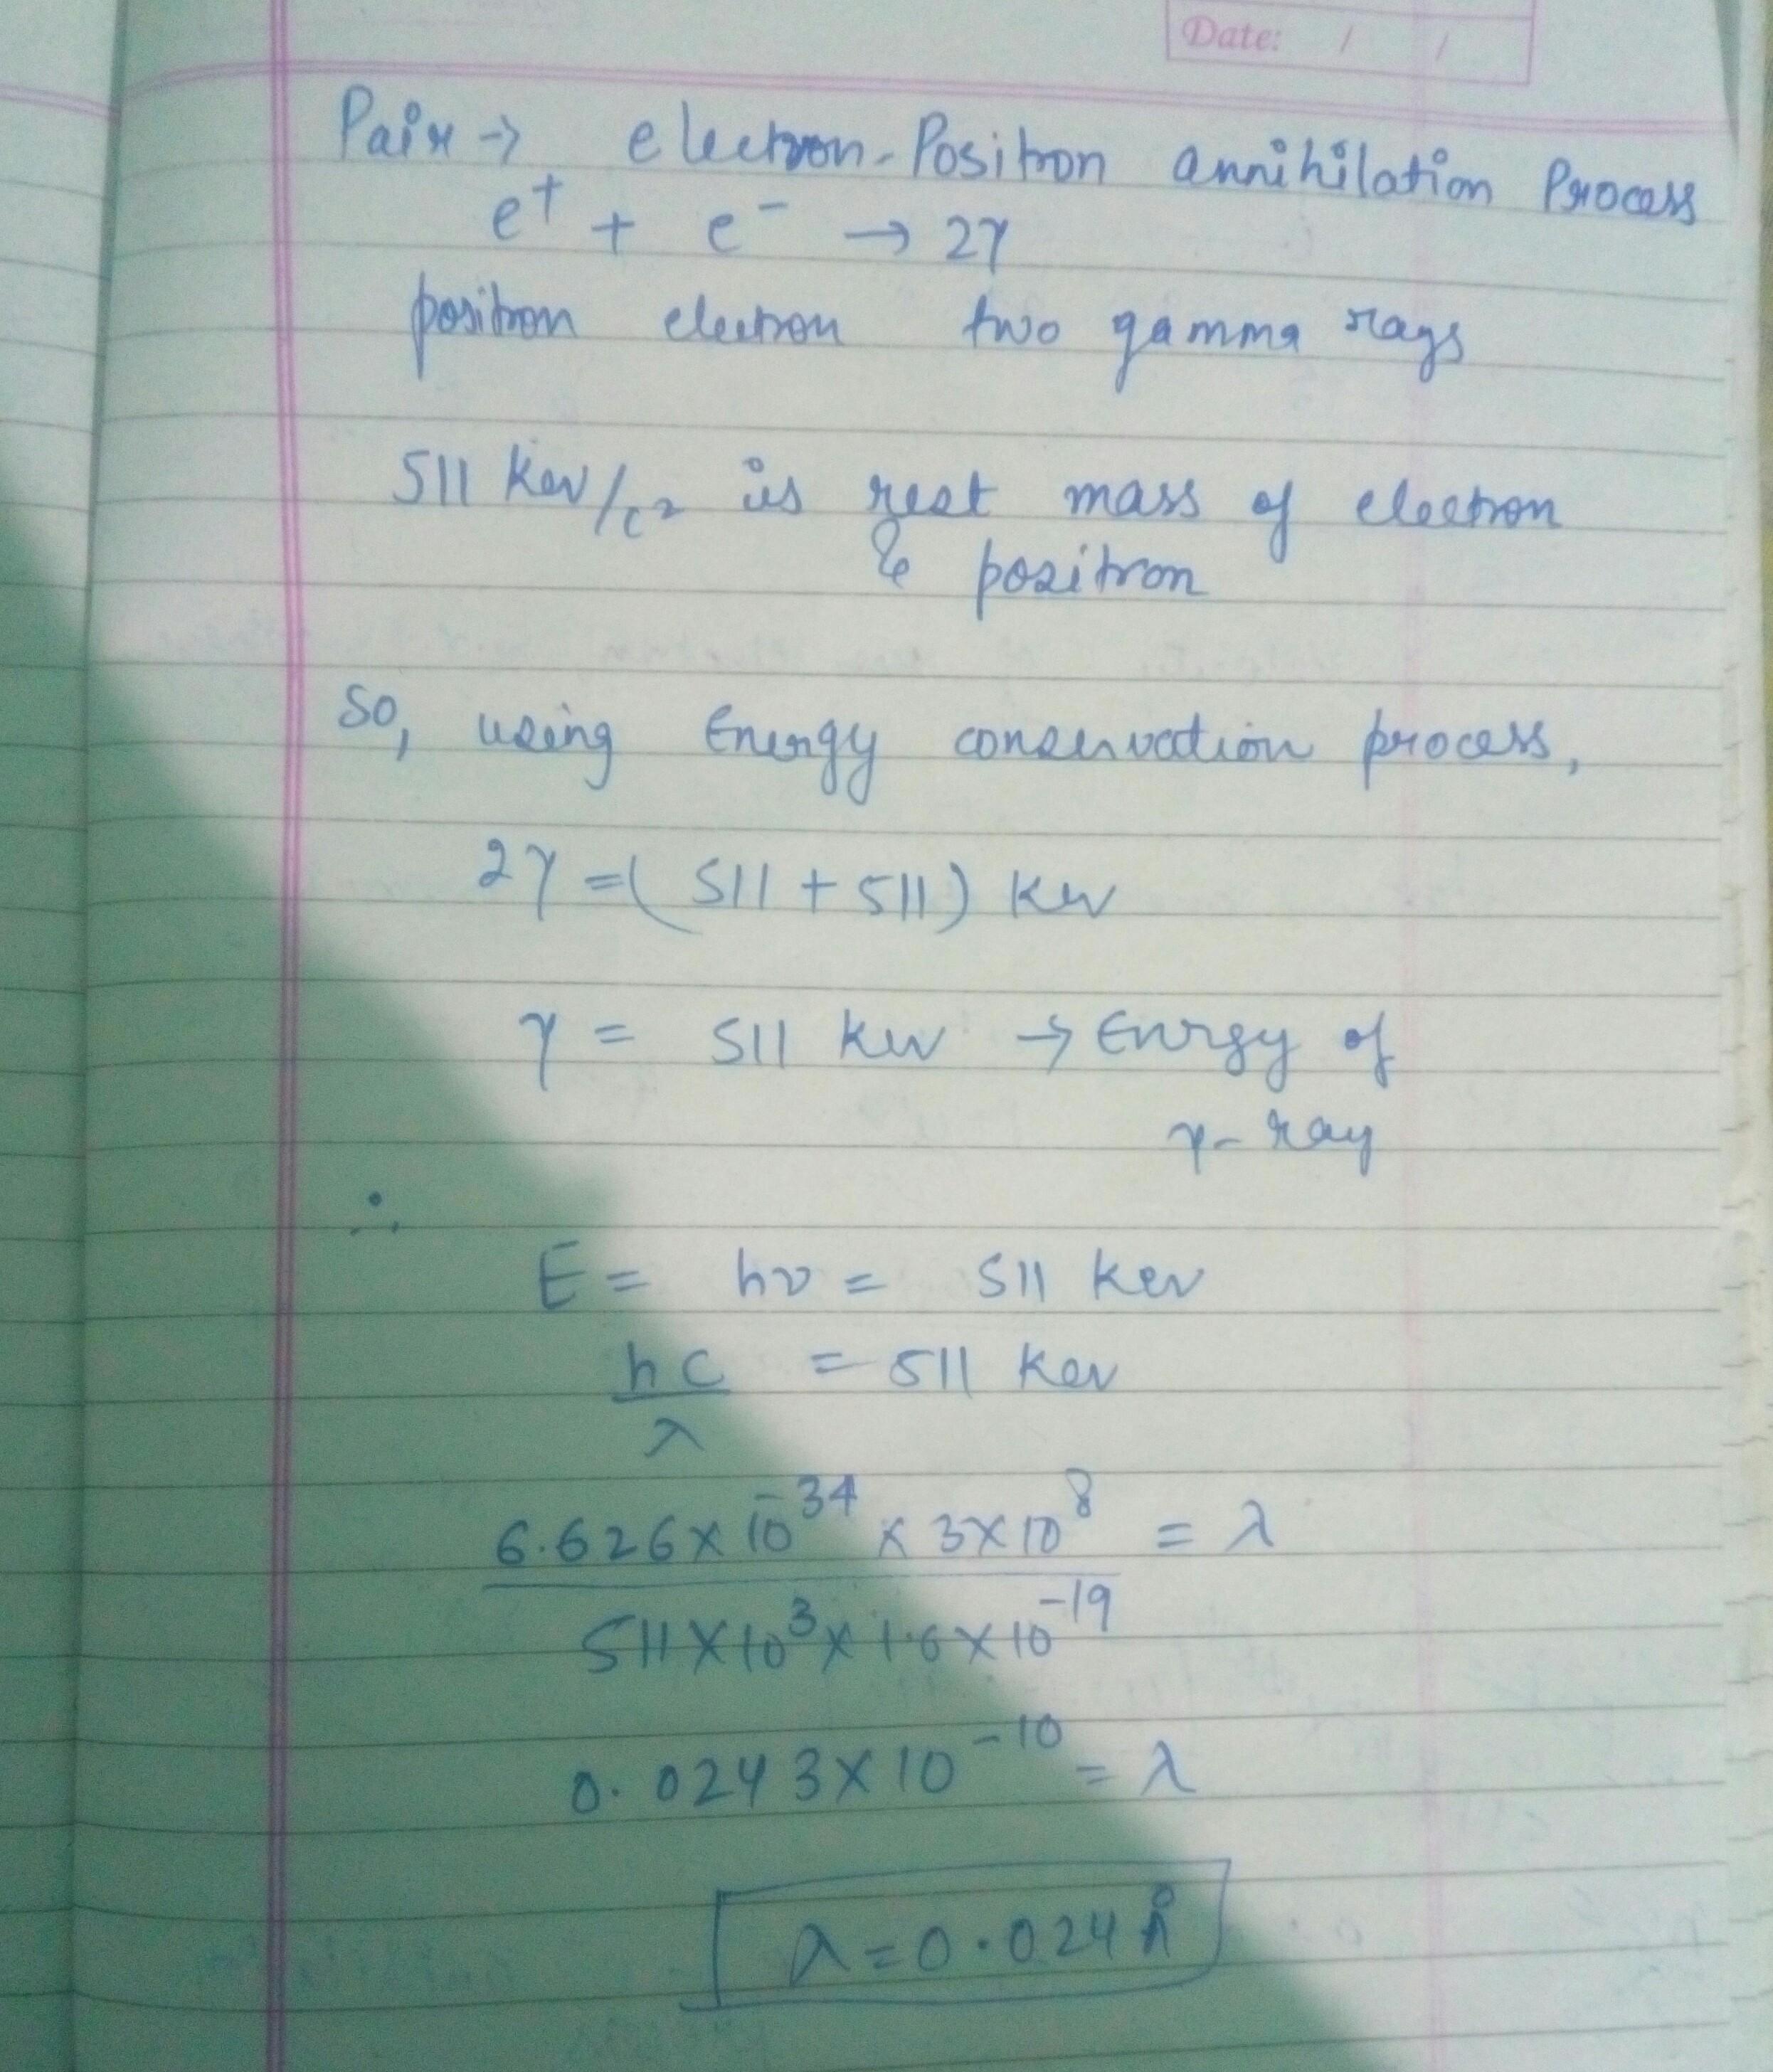 Date: / /
Pair → electron-Positron annihilation Process
e⁺ + e⁻ → 2γ
positron electron two gamma rays
511 Kev/c² is rest mass of electron
& positron
So, using Energy conservation process,
2γ = (511 + 511) Kev
γ = 511 Kev → Energy of
γ-ray
∴
E = hν = 511 Kev
hc/λ = 511 Kev
6.626×10⁻³⁴ × 3×10⁸ / 511×10³×1.6×10⁻¹⁹ = λ
0.0243×10⁻¹⁰ = λ
λ=0.024Å